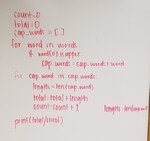 count=0
total=0
cap_words = [ ]
for word in words
if word[0] isupper
cap_words = cap_words + word
for cap_word in cap_words
length = len(cap_word)
total = total + length
count = count + 1
print(total/count)